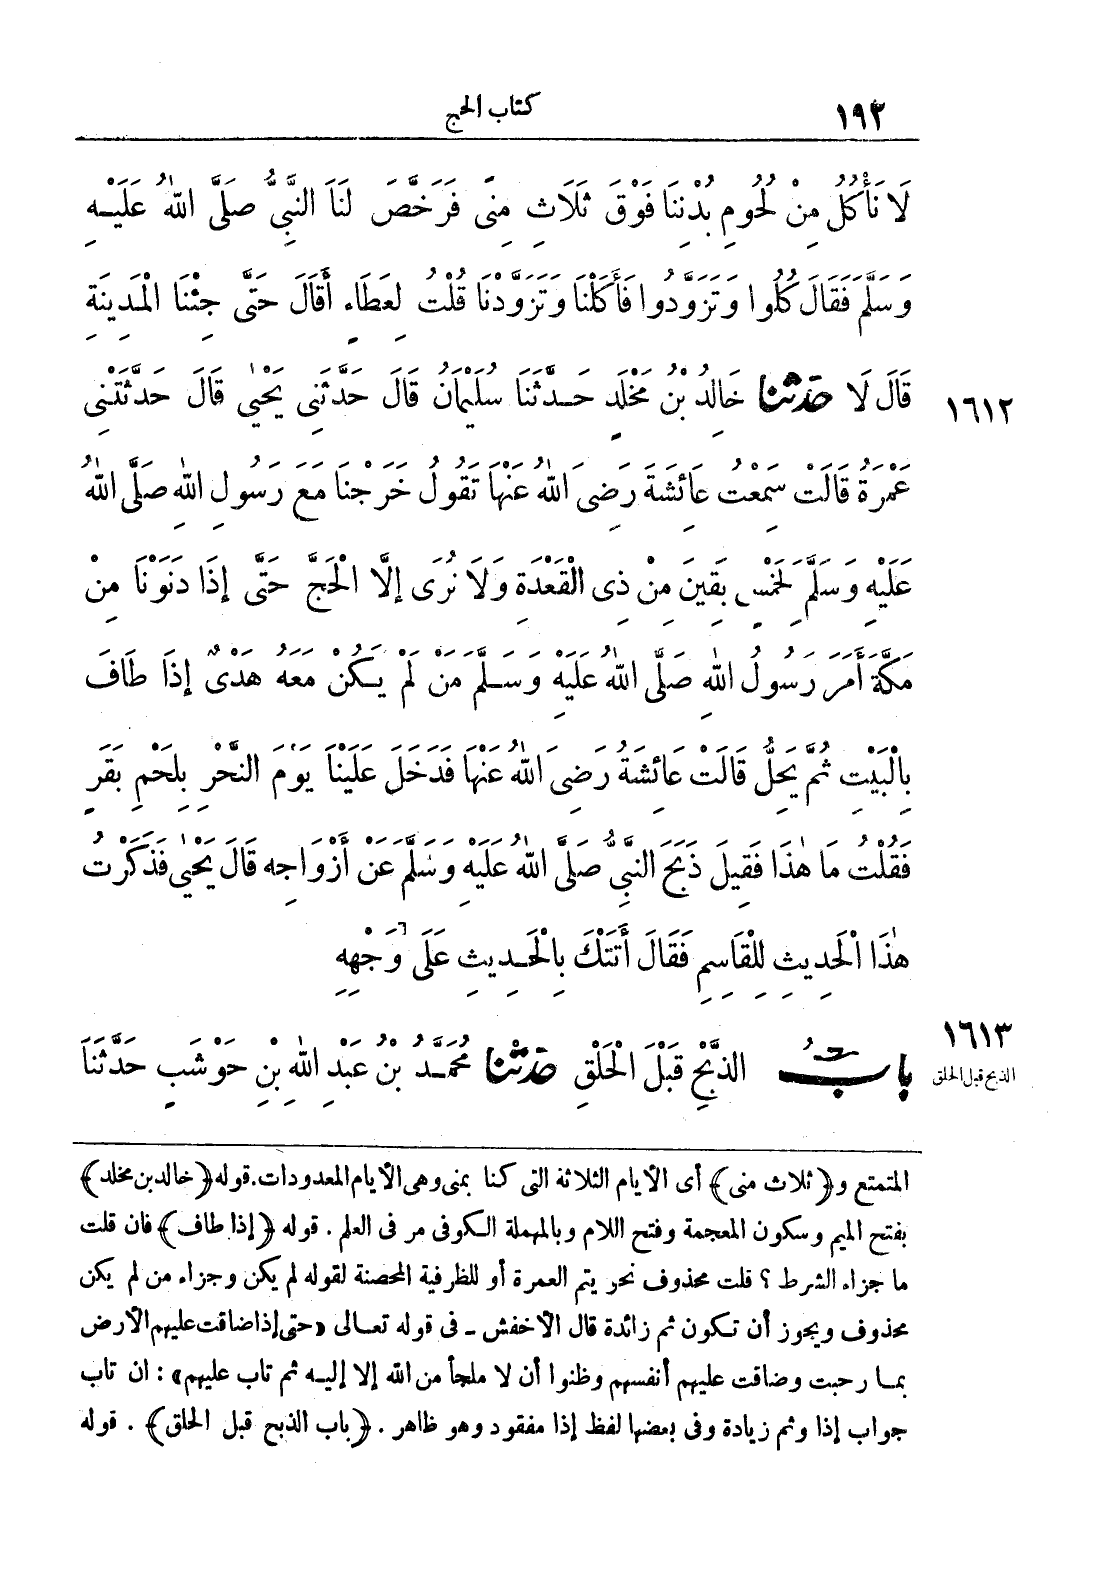 ١٩٢ كتاب الحج
لَا نَأْكُلُ مِنْ لُحُومِ بُدْنِنَا فَوْقَ ثَلَاثِ مِنًى فَرَخَّصَ لَنَا النَّبِىُّ صَلَّى اللهُ عَلَيْهِ
وَسَلَّمَ فَقَالَ كُلُوا وَتَزَوَّدُوا فَأَكَلْنَا وَتَزَوَّدْنَا قُلْتُ لِعَطَاءٍ أَقَالَ حَتَّى جِئْنَا الْمَدِينَةِ
١٦١٢ قَالَ لَا حَدَّثَنَا خَالِدُ بْنُ مَخْلَدٍ حَدَّثَنَا سُلَيْمَانُ قَالَ حَدَّثَنِى يَحْيٰى قَالَ حَدَّثَتْنِى
عَمْرَةُ قَالَتْ سَمِعْتُ عَائِشَةَ رَضِىَ اللهُ عَنْهَا تَقُولُ خَرَجْنَا مَعَ رَسُولِ اللهِ صَلَّى اللهُ
عَلَيْهِ وَسَلَّمَ لِخَمْسٍ بَقِينَ مِنْ ذِى الْقَعْدَةِ وَلَا نُرَى إِلَّا الْحَجَّ حَتَّى إِذَا دَنَوْنَا مِنْ
مَكَّةَ أَمَرَ رَسُولُ اللهِ صَلَّى اللهُ عَلَيْهِ وَسَلَّمَ مَنْ لَمْ يَكُنْ مَعَهُ هَدْىٌ إِذَا طَافَ
بِالْبَيْتِ ثُمَّ يَحِلُّ قَالَتْ عَائِشَةُ رَضِىَ اللهُ عَنْهَا فَدَخَلَ عَلَيْنَا يَوْمَ النَّحْرِ بِلَحْمِ بَقَرٍ
فَقُلْتُ مَا هٰذَا فَقِيلَ ذَبَحَ النَّبِىُّ صَلَّى اللهُ عَلَيْهِ وَسَلَّمَ عَنْ أَزْوَاجِهِ قَالَ يَحْيٰى فَذَكَرْتُ
هٰذَا الْحَدِيثَ لِلْقَاسِمِ فَقَالَ أَتَتْكَ بِالْحَدِيثِ عَلَى وَجْهِهِ
١٦١٣
الذبح قبل الحلق
بَابُ الذَّبْحِ قَبْلَ الْحَلْقِ حَدَّثَنَا مُحَمَّدُ بْنُ عَبْدِ اللهِ بْنِ حَوْشَبٍ حَدَّثَنَا
المتمتع و﴿ثلاث منى﴾ أى الأيام الثلاثة التى كنا بمنى وهى الأيام المعدودات. قوله ﴿خالد بن مخلد﴾
بفتح الميم وسكون المعجمة وفتح اللام وبالمهملة الكوفى مر فى العلم . قوله ﴿إذا طاف﴾ فان قلت
ما جزاء الشرط ؟ قلت محذوف نحو يتم العمرة أو للظرفية المحضة لقوله لم يكن وجزاء من لم يكن
محذوف ويجوز أن تكون ثم زائدة قال الأخفش - فى قوله تعالى «حتى إذا ضاقت عليهم الأرض
بما رحبت وضاقت عليهم أنفسهم وظنوا أن لا ملجأ من الله إلا إليه ثم تاب عليهم» : ان تاب
جواب إذا وثم زيادة وفى بعضها لفظ إذا مفقود وهو ظاهر . ﴿باب الذبح قبل الحلق﴾ . قوله